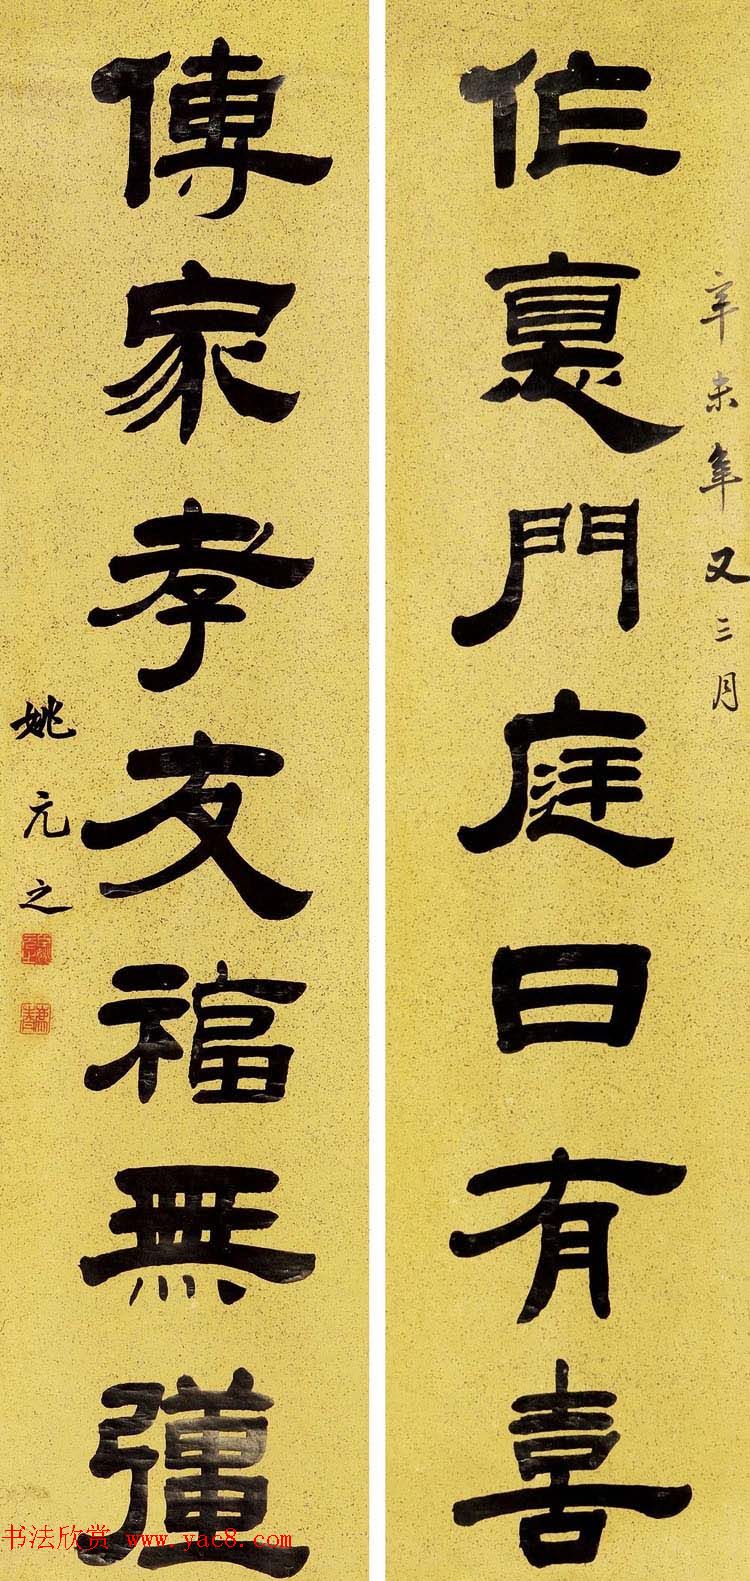 辛未年又三月
作悳門庭日有喜
傳家孝友福無彊
姚元之
书法欣赏 www.yac8.com